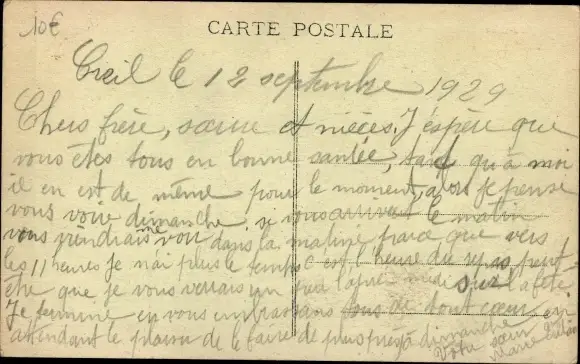 10€
CARTE POSTALE
Creil le 12 septembre 1929
Chers frère, sœur et nièces. J'éspère que
vous êtes tous en bonne santée, tant qu'à moi
il en est de même pour le moment, alors je pense
vous voir dimanche, si vous arrivez le matin
vous viendrais me voir dans la matiné parce que vers
les 11 heures je n'ai plus le temps c'est l'heure du repas peut
être que je vous verrais un peu l'après midi sur la fête
Je termine en vous embrassant tous de tout cœur en
attendant le plaisir de le faire de plus près à dimanche
Votre sœur